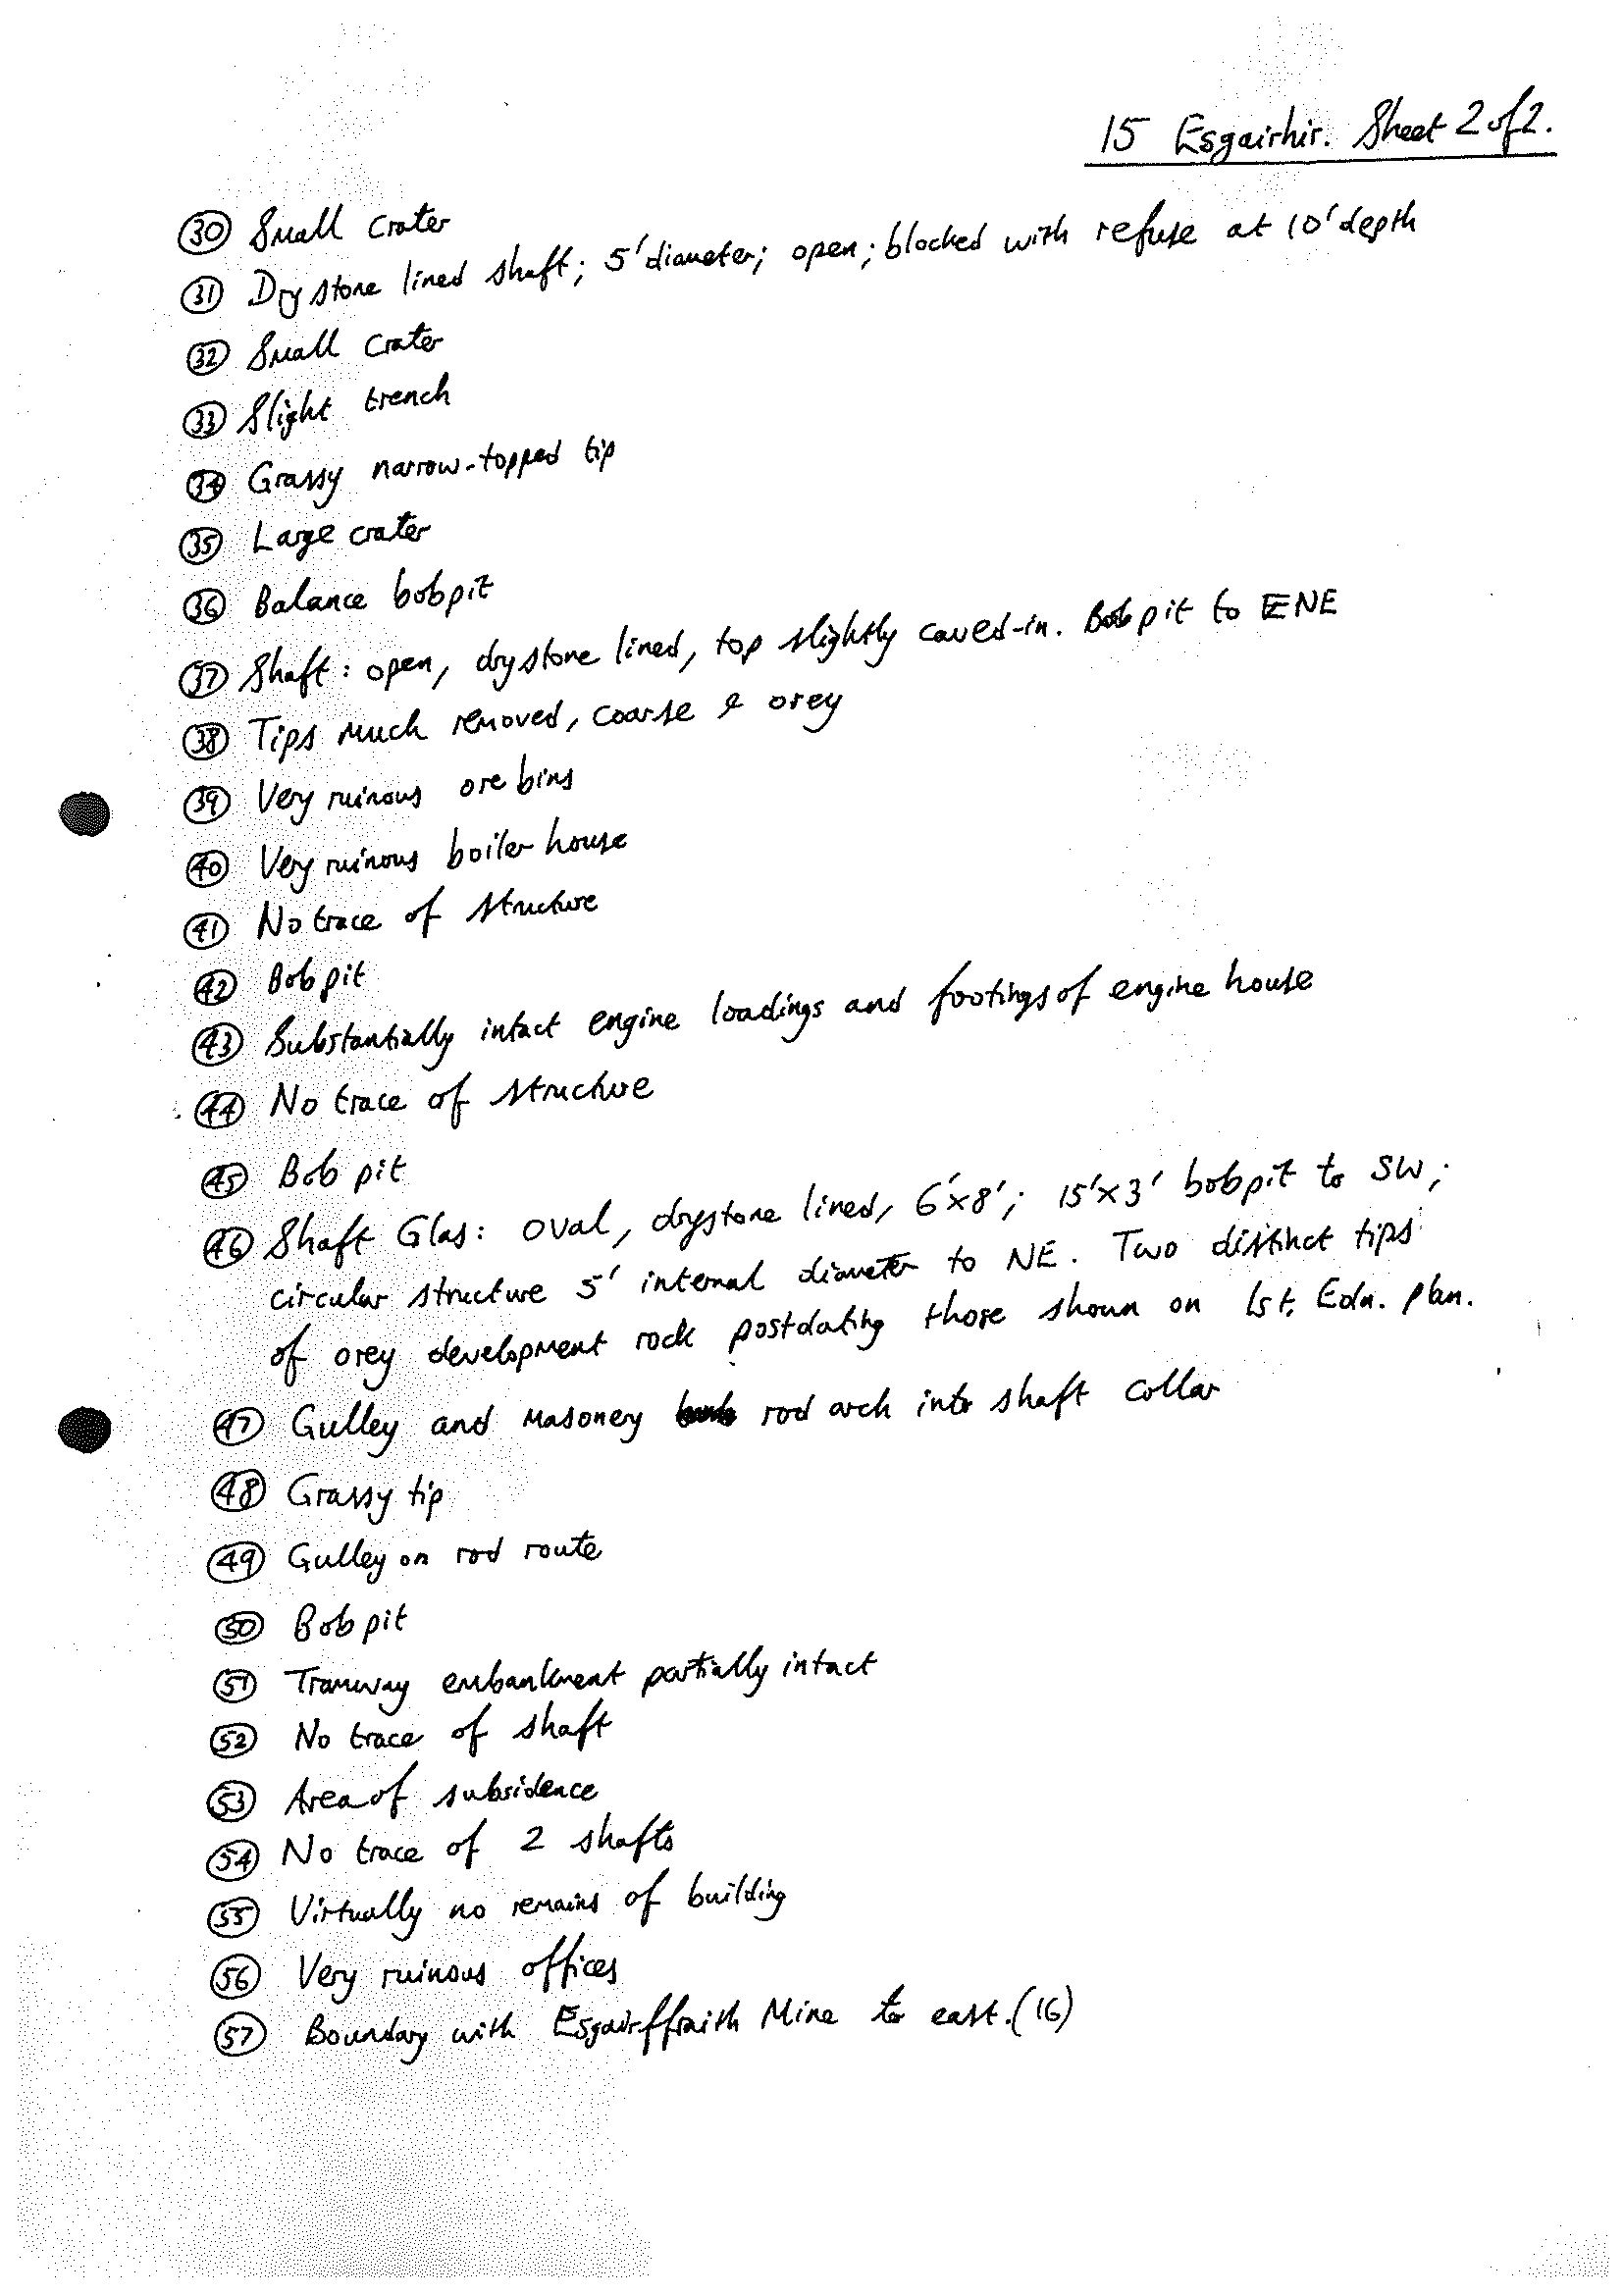 15 Esgairhir. Sheet 2 of 2.
30 Small crater
31 Drystone lined shaft; 5' diameter; open; blocked with refuse at 10' depth
32 Small crater
33 Slight trench
34 Grassy narrow-topped tip
35 Large crater
36 Balance bobpit
37 Shaft: open, drystone lined, top slightly caved-in. Bobpit to ENE
38 Tips much removed, coarse & orey
39 Very ruinous ore bins
40 Very ruinous boiler house
41 No trace of structure
42 Bobpit
43 Substantially intact engine loadings and footings of engine house
44 No trace of structure
45 Bob pit
46 Shaft Glas: oval, drystone lined, 6'x8'; 15'x3' bobpit to SW;
circular structure 5' internal diameter to NE. Two distinct tips
of orey development rock postdating those shown on 1st. Edn. plan.
47 Gulley and masonery rod arch into shaft collar
48 Grassy tip
49 Gulley on rod route
50 Bob pit
51 Tramway embankment partially intact
52 No trace of shaft
53 Area of subsidence
54 No trace of 2 shafts
55 Virtually no remains of building
56 Very ruinous offices
57 Boundary with Esgairffraith Mine to east. (16)